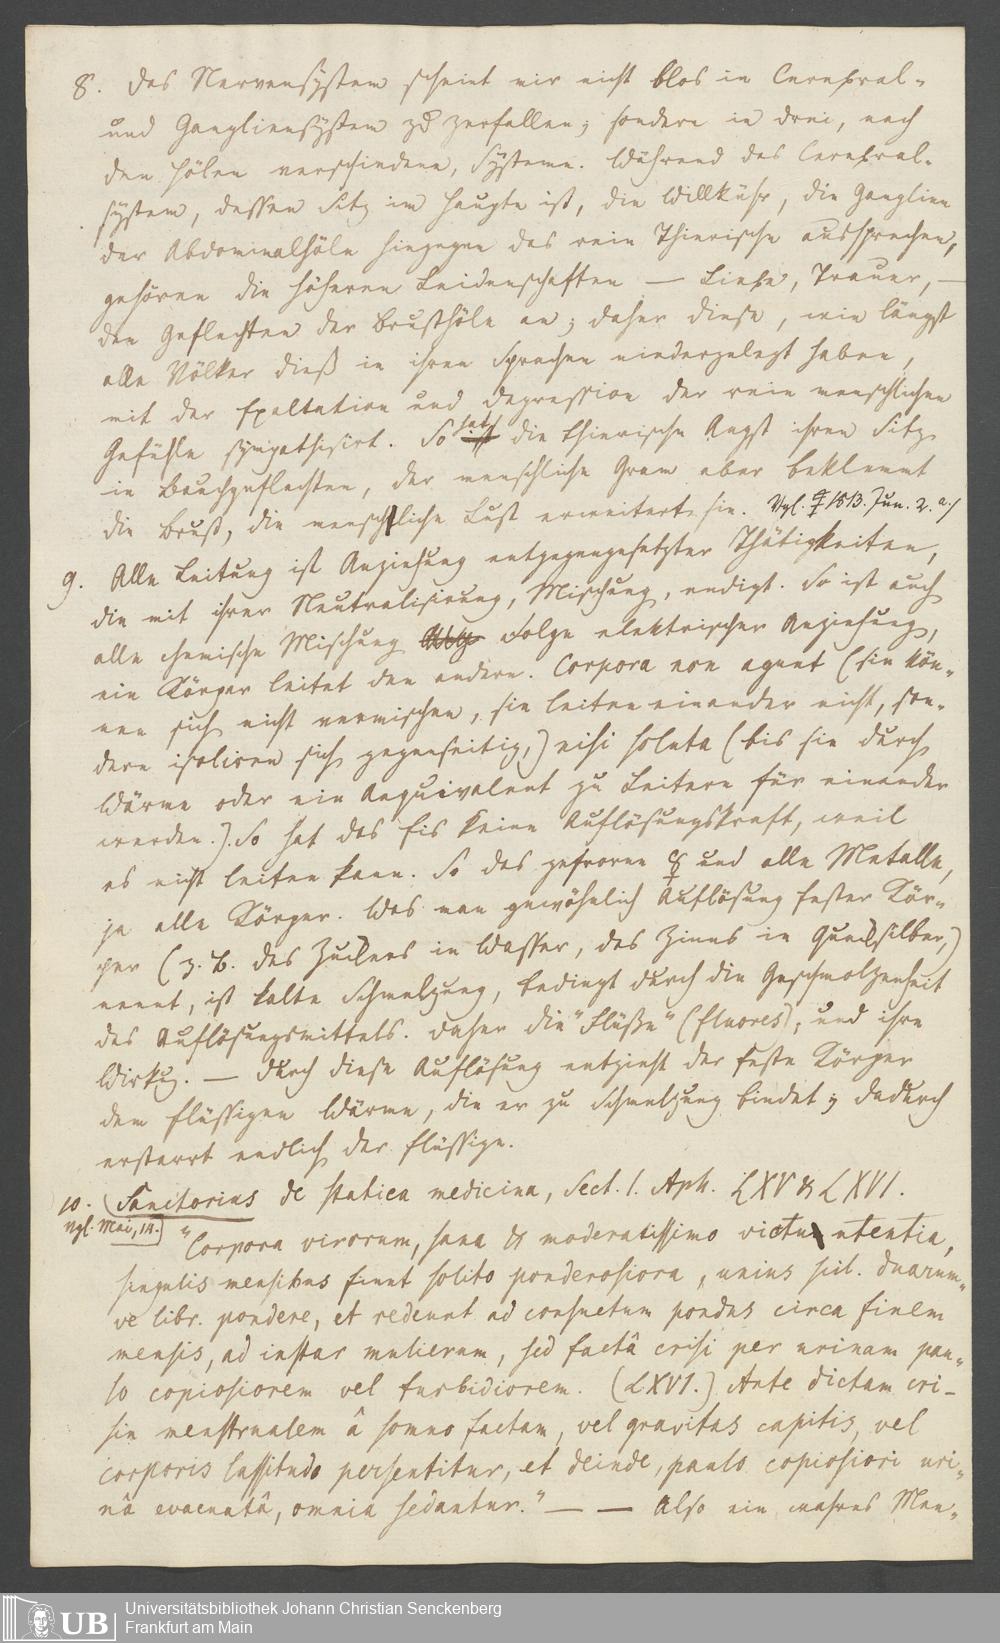 8. Das Nervensystem scheint mir nicht blos in Cerebral-
und Gangliensystem zu zerfallen; sondern in drei, nach
den Hölen verschiedene, Systeme. Während das Cerebral-
system, dessen Sitz im Haupte ist, die Willkühr, die Ganglien
der Abdominalhöle hingegen das rein Thierische aussprechen,
gehören die höheren Leidenschaften — Liebe, Trauer, —
den Geflechten der Brusthöle an; daher diese, wie längst
alle Völker dieß in ihren Sprachen niedergelegt haben,
mit der Exaltation und Depression der rein menschlichen
Gefühle sympathisirt. So hat die thierische Angst ihren Sitz
in Bauchgeflechten, der menschliche Gram aber beklemmt
die Brust, die menschliche Lust erweitert sie. Vgl. ☿ 1813. Jun. 2. a./
9. Alle Leitung ist Anziehung entgegengesetzter Thätigkeiten,
die mit ihrer Neutralisirung, Mischung, endigt. So ist auch
alle chemische Mischung Folge elektrischer Anziehung,
ein Körper leitet den andern. Corpora non agunt (sie kön-
nen sich nicht vermischen, sie leiten einander nicht, son-
dern isoliren sich gegenseitig,) nisi soluta (bis sie durch
Wärme oder ein Aequivalent zu Leitern für einander
werden.). So hat das Eis keine Auflösungskraft, weil
es nicht leiten kann. So das gefrorne ☿ und alle Metalle,
ja alle Körper. Was man gewöhnlich Auflösung fester Kör-
per (z. B. des Zuckers in Wasser, des Zinns in Quecksilber,)
nennt, ist kalte Schmelzung, bedingt durch die Geschmolzenheit
des Auflösungsmittels. Daher die "Flüße" (fluores), und ihre
Wirkg. — Durch diese Auflösung entzieht der feste Körper
dem flüssigen Wärme, die er zu Schmelzung bindet; dadurch
erstarrt endlich der flüssige.
10. (Sanctorius de statica medicina, Sect. I. Aph. LXV & LXVI.
Vgl. Mai, 14.) "Corpora virorum, sana & moderatissimo victu utentia,
singulis mensibus fiunt solito ponderosiora, unius scil. duarum-
ve libr. pondere, et redeunt ad consuetum pondus circa finem
mensis, ad instar mulierum, sed factâ crisi per urinam pau-
lo copiosiorem vel turbidiorem. (LXVI.) Ante dictam cri-
sin menstrualem â somno factam, vel gravitas capitis, vel
corporis lassitudo persentitur, et deinde, paulo copiosiori uri-
nâ evacuatâ, omnia sedantur." — — Also ein wahres Men-
UB Universitätsbibliothek Johann Christian Senckenberg
Frankfurt am Main